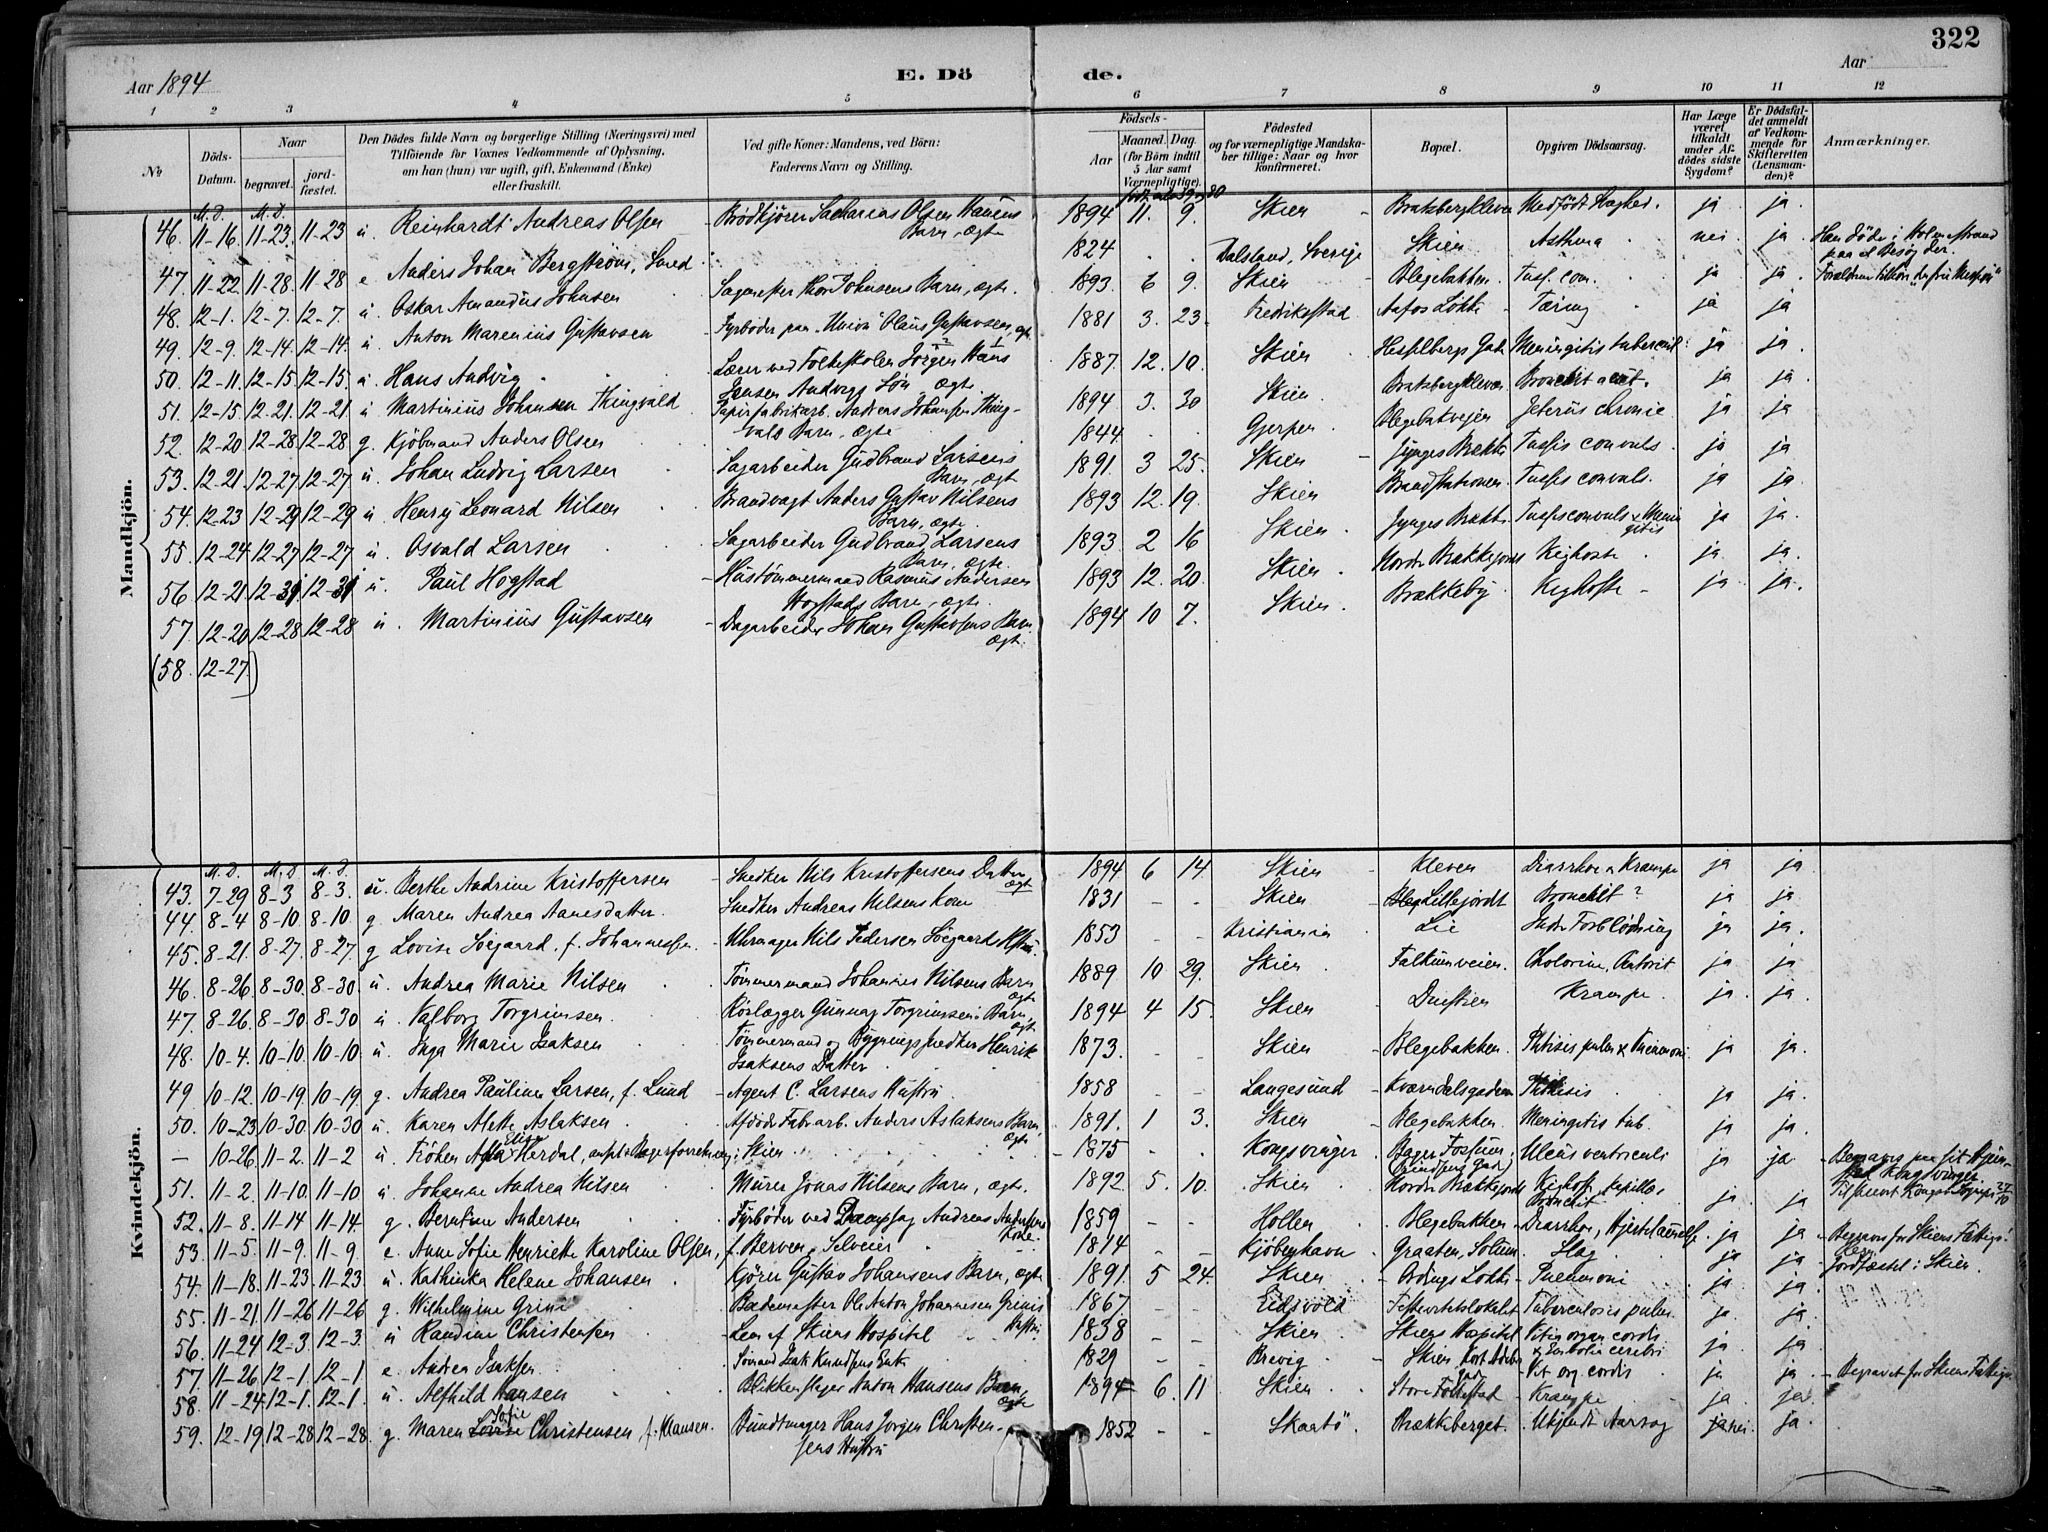 322
Aar 1894 E. Dö de. Aar
1 2 3 4 5 6 7 8 9 10 11 12
No Döds-Datum. Naar begravet. jord-fæstet. Den Dödes fulde Navn og borgerlige Stilling (Næringsvei) med Tilföiende for Voxnes Vedkommende af Oplysning, om han (hun) var ugift, gift, Enkemand (Enke) eller fraskilt. Ved gifte Koner: Mandens, ved Börn: Faderens Navn og Stilling. Födsels- Aar Maaned. Dag. (for Börn indtil 5 Aar samt Værnepligtige). Födested og for værnepligtige Mandskaber tillige: Naar og hvor konfirmeret. Bopæl. Opgiven Dödsaarsag. Har Læge været tilkaldt under Afdödes sidste Sygdom? Er Dödsfaldet anmeldt af Vedkommende for Skifteretten (Lensmanden)? Anmærkninger.
Mandkjön.
M. D. M. D.
46. 11-16. 11-23. 11-23 u. Reinhardt Andreas Olsen - Brödkjörer Sacharias Olsen Barn, ægte 1894 11. 9. Skien - Bratsbergkleven Medfödt Svaghed. ja ja.
47. 11-22. 11-28. 11-28 e Anders Johan Bergström, Smed 1824 Dalsland, Sverige Skien Asthma nei. ja. Han döde i Holmestrand paa et Besög der.
48. 12-1. 12-7. 12-7. u. Oskar Amandus Johnsen Sagmester Thor Johnsens Barn, ægte. 1893. 6 9. Skien Blegebakken. Tuss. con. ja ja.
49. 12-9. 12-14. 12-14. u. Anton Marenius Gustavsen - Fyrböder paa "Union" Olaus Gustavsen, ægte 1881 3. 23. Fredriksstad Aafos Lökke - Tæring ja ja
50. 12-11. 12-15. 12-15. u Hans Andvig Lærer ved Folkeskolen Jörgen Hans Jansen Andvigs Sön, ægte. 1887. 12. 10. Skien Hesselbergs Gade Meningitis tubercul. ja ja.
51. 12-15. 12-21. 12-21. u Martinius Johansen Thingvald Papirfabrikarb. Andreas Johansen Thingvalds Barn, ægte 1894 3. 30 Skien. Bratsbergkleven Bronchit acut. ja ja.
52. 12-20 12-28 12-28 g. Kjöbmand Anders Olsen 1844. Gjerpen Blegebakveien Icterus chronic. ja ja
53. 12-21. 12-27. 12-27 u. Johan Ludvig Larsen Sagarbeider Gudbrand Larsens Barn, ægte 1891. 3 25. Skien - Jynges Brække Tussis convuls. ja ja
54. 12-23 12-29 12-29 u Henry Leonard Nilsen Brandvagt Anders Gustav Nilsens Barn, ægte. 1893 12. 19. Skien Brandstationen Tussis convuls. ja ja.
55. 12-24. 12-27 12-27 u. Osvald Larsen Sagarbeider Gudbrand Larsens Barn, ægte. 1893. 2 16 Skien. Jynges Brække Tussis convuls & Meningitis ja ja.
56. 12-21. 12-31 12-31 u. Paul Hogstad - Hustömmermand Rasmus Andersen Hogstads Barn, ægte. 1893 12. 20 Skien. Nordre Brækkejordet Kighoste ja ja.
57 12-20 12-28 12-28 u. Martinius Gustavsen - Dagarbeider Johan Gustavsens Barn ægte. 1894 10 7. Skien. Brækkeby. Kighoste ja ja.
(58. 12-27.)
Kvindekjön.
M. D. M. D M. D.
43. 7-29 8-3 8-3. u. Berthe Andrine Kristoffersen - Snedker Nils Kristoffersens Datter ægte 1894 6 14 Skien - Kleven Diarrhoe & Krampe ja ja
44. 8-4 8-10 8-10. g. Maren Andrea Aanesdatter. Snedker Andreas Nilsens Kone 1831 - - Skien Lillejordet Bronchit? ja ja.
45. 8-21. 8-27. 8-27. g Lovise Söegaard, f. Johannessen. - Uhrmager Nils Pedersen Söegaards Hustru. 1853 - - Kristiania Lie Indre Forblödning ja ja.
46. 8-26. 8-30. 8-30 u. Andrea Marie Nilsen Tömmermand Johannes Nilsens Barn ægte 1889 10 29. Skien Falkumveien. Cholorine, Enterit ja ja
47. 8-26. 8-30 8-30 u. Valborg Torgrimsen. - Rörlægger Gunnar Torgrimsens Barn, ægte 1894 4 15. Skien - Duestien Krampe ja. ja.
48. 10-4. 10-10. 10-10 u. Inga Marie Isaksen Tömmermand og Bygningssnedker Henrik Isaksens Datter 1873. - - Skien Blegebakken. Phtisis pulm & Pneumoni ja ja.
49 10-12. 10-19 10-19 g. Andrea Pauline Larsen, f. Lund - Agent C. Larsens Hustru 1858 - - Langesund - Kværndalsgaden Phthisis ja ja.
50. 10-23 10-30 10-30 u. Karen Alette Aslaksen. Afdöde Fabr.arb. Anders Aslaksens Barn, ægte 1891. 1 3. Skien - Blegebakken. Meningitis tub. ja ja.
— 10-26. 11-2. 11-2 u. Fröken Elise Herdal, i Skien 1875 - - Kongsvinger Bager Fossum, Ulcus ventriculi ja ja
51. 11-2. 11-10. 11-10 u. Johanne Andrea Nilsen Murer Jonas Nilsens Barn, ægte. 1892. 5. 10. Skien Nordre Brækkejordet Kighoste, kapillær Bronchit ja ja
52. 11-8. 11-14 11-14 g. Berntine Andersen Fyrböder ved Dampsag Andreas Andersens Kone. 1859 - - Hollen Blegebakken - Diarrhoe, ja ja
53. 11-5. 11-9. 11-9. e. Anne Sofie Henriette Karoline Olsen, f. Berven, 1814 - - Kjöbenhavn Graaten, Solum. Slag ja ja. - Begravet for Skiens Fattigv.
54. 11-18. 11-23 11-23. u. Kathinka Helene Johansen Kjörer Gustav Johansens Barn, ægte 1891. 5 24. Skien - Lökke - Pneumoni ja ja. Jordfæstet i Skien
55. 11-21. 11-26 11-26 g. Wilhelmine Grini Bademester Ole Anton Johannesen Grinis Hustru 1867. - - Eidsvold Tuberculosis pulm. ja ja.
56. 11-24 12-3. 12-3. u Randine Christensen Lem af Skiens Hospital 1838 - - Skien Skiens Hospital Vitium organ cordis & Embolia cerebri ja ja
57. 11-26 12-1. 12-1 e. Andrea Isaksen Sömand Isak Knudsens Enke 1829 - - Brevig Skien, Vit. org. cordis ja ja. - Begravet for Skiens Fattigv.
58. 11-24 12-1. 12-1. u. Alfhild Hansen Blikkenslager Anton Hansens Barn, ægte 1894 6. 11 Skien Store Falkestad - Krampe ja ja
59. 12-19. 12-28 12-28. g. Maren Sofie Christensen, f. Klausen. Bundtmager Hans Jörgen Christensens Hustru 1852 - - Skaatö Brækkeberget. Ukjendt Aarsag nei. ja.